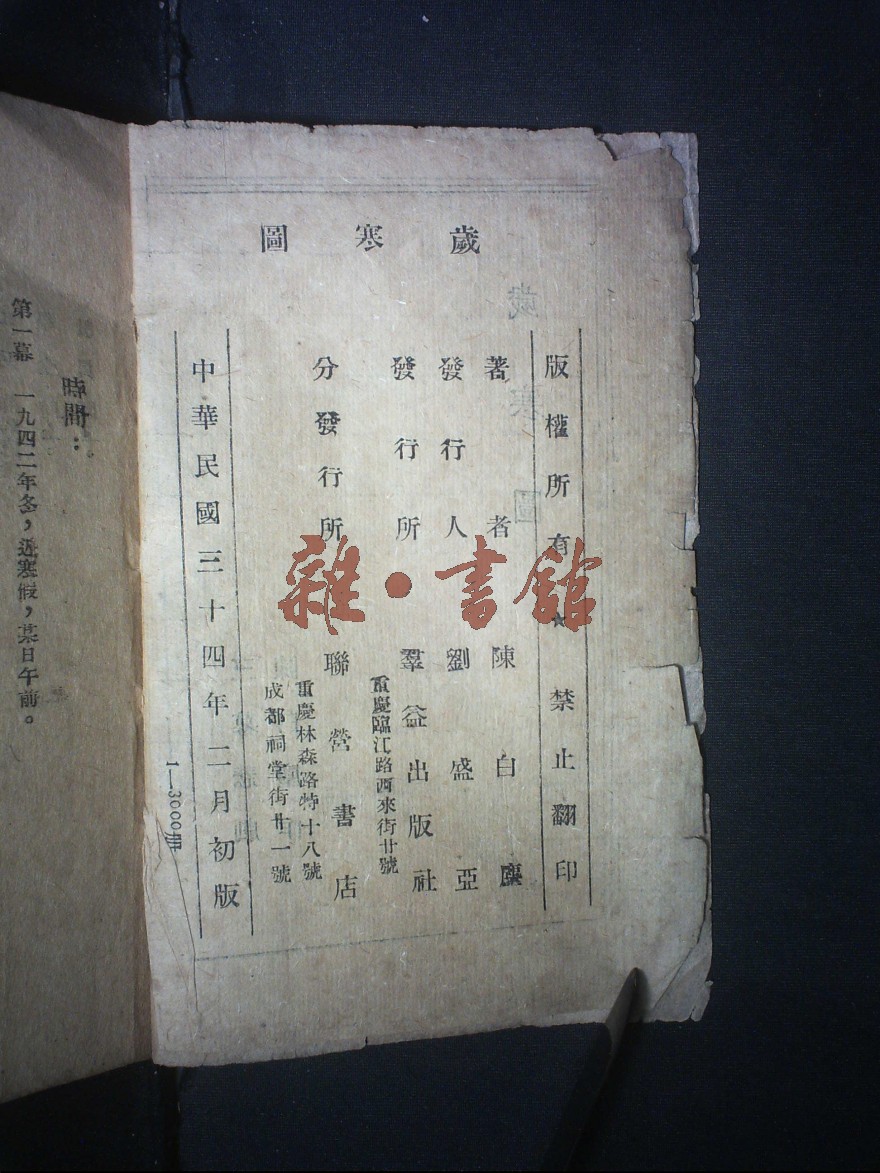 歲寒圖
版權所有★禁止翻印
著者 陳白塵
發行人 劉盛亞
發行所 羣益出版社
重慶臨江路西來街廿號
分發行所 聯營書店
重慶林森路特十八號
成都祠堂街廿一號
中華民國三十四年二月初版
1—3000冊
時間：
第一幕 一九四二年冬，近寒假，某日午前。
歲寒圖
雜·書館